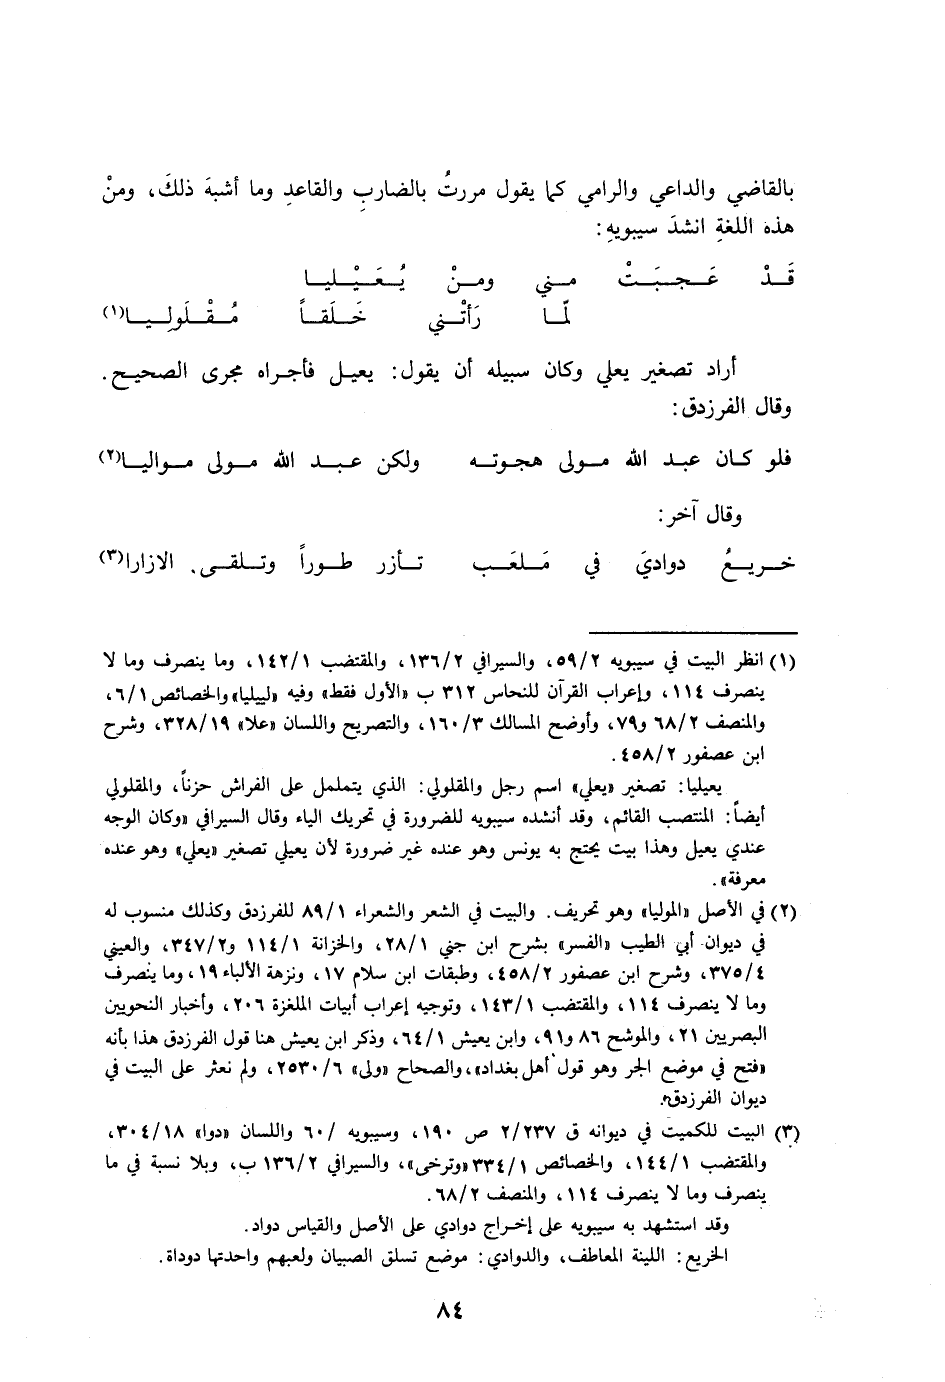 بالقاضي والداعي والرامي كما يقول مررتُ بالضاربِ والقاعدِ وما أشبهَ ذلكَ، ومنْ
هذه اللغةِ انشدَ سيبويهِ:
قَدْ عَجِبَتْ مني ومنْ يُعَيْليا
لمّا رَأتْني خَلَقاً مُقْلَولِيا(١)
أراد تصغير يعلي وكان سبيله أن يقول: يعيل فأجراه مجرى الصحيح.
وقال الفرزدق:
فلو كان عبد الله مولى هجوته ولكن عبد الله مولى مواليا(٢)
وقال آخر:
خريعُ دواديَ في مَلعَب تأزر طوراً وتلقى. الازارا(٣)
(١) انظر البيت في سيبويه ٥٩/٢، والسيرافي ١٣٦/٢، والمقتضب ١٤٢/١، وما ينصرف وما لا
ينصرف ١١٤، وإعراب القرآن للنحاس ٣١٢ ب «الأول فقط» وفيه «لييليا» والخصائص ٦/١،
والمنصف ٦٨/٢ و٧٩، وأوضح المسالك ١٦٠/٣، والتصريح واللسان «علا» ٣٢٨/١٩، وشرح
ابن عصفور ٤٥٨/٢.
يعيليا: تصغير «يعلي» اسم رجل والمقلولي: الذي يتململ على الفراش حزناً، والمقلولي
أيضاً: المنتصب القائم، وقد أنشده سيبويه للضرورة في تحريك الياء وقال السيرافي «وكان الوجه
عندي يعيل وهذا بيت يحتج به يونس وهو عنده غير ضرورة لأن يعيلي تصغير «يعلي» وهو عنده
معرفة».
(٢) في الأصل «الموليا» وهو تحريف. والبيت في الشعر والشعراء ٨٩/١ للفرزدق وكذلك منسوب له
في ديوان أبي الطيب «الفسر» بشرح ابن جني ٢٨/١، والخزانة ١١٤/١ و٣٤٧/٢، والعيني
٣٧٥/٤، وشرح ابن عصفور ٤٥٨/٢، وطبقات ابن سلام ١٧، ونزهة الألباء ١٩، وما ينصرف
وما لا ينصرف ١١٤، والمقتضب ١٤٣/١، وتوجيه إعراب أبيات الملغزة ٢٠٦، وأخبار النحويين
البصريين ٢١، والموشح ٨٦ و٩١، وابن يعيش ٦٤/١، وذكر ابن يعيش هنا قول الفرزدق هذا بأنه
«فتح في موضع الجر وهو قول أهل بغداد»، والصحاح «ولى» ٢٥٣٠/٦، ولم نعثر على البيت في
ديوان الفرزدق.
(٣) البيت للكميت في ديوانه ق ٢/٢٣٧ ص ١٩٠، وسيبويه /٦٠ واللسان «دوا» ٣٠٤/١٨،
والمقتضب ١٤٤/١، والخصائص ٣٣٤/١ «وترخى»، والسيرافي ١٣٦/٢ ب، وبلا نسبة في ما
ينصرف وما لا ينصرف ١١٤، والمنصف ٦٨/٢.
وقد استشهد به سيبويه على إخراج دوادي على الأصل والقياس دواد.
الخريع: اللينة المعاطف، والدوادي: موضع تسلق الصبيان ولعبهم واحدتها دوداة.
٨٤